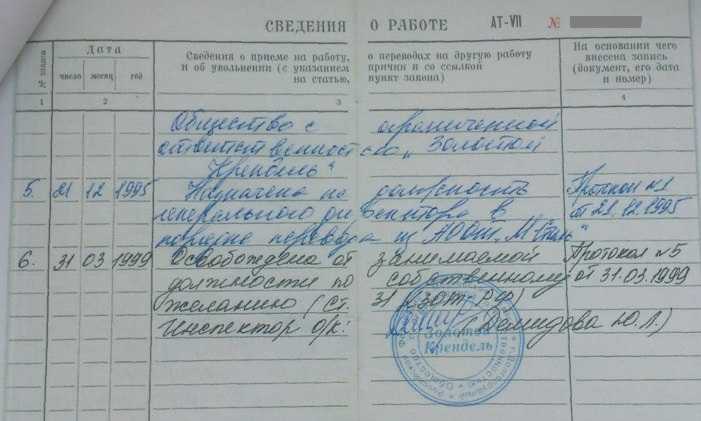 СВЕДЕНИЯ О РАБОТЕ AT-VII №
№ записи
Дата
число месяц год
Сведения о приеме на работу, о переводах на другую работу
и об увольнении (с указанием причин и со ссылкой
на статью, пункт закона)
На основании чего
внесена запись
(документ, его дата
и номер)
1 2 3 4
Общество с ограниченной
ответственностью „Золотой
Крендель"
5. 21 12 1995 Назначена на должность Протокол №1
генерального директора в от 21.12.1995
порядке перевода из АООТ „М
6. 31 03 1999 Освобождена от занимаемой Протокол №5
должности по собственному от 31.03.1999
желанию (ст. 31 КЗОТ РФ)
Инспектор о/к: (Демидова Ю.Л.)
Золотой
Крендель